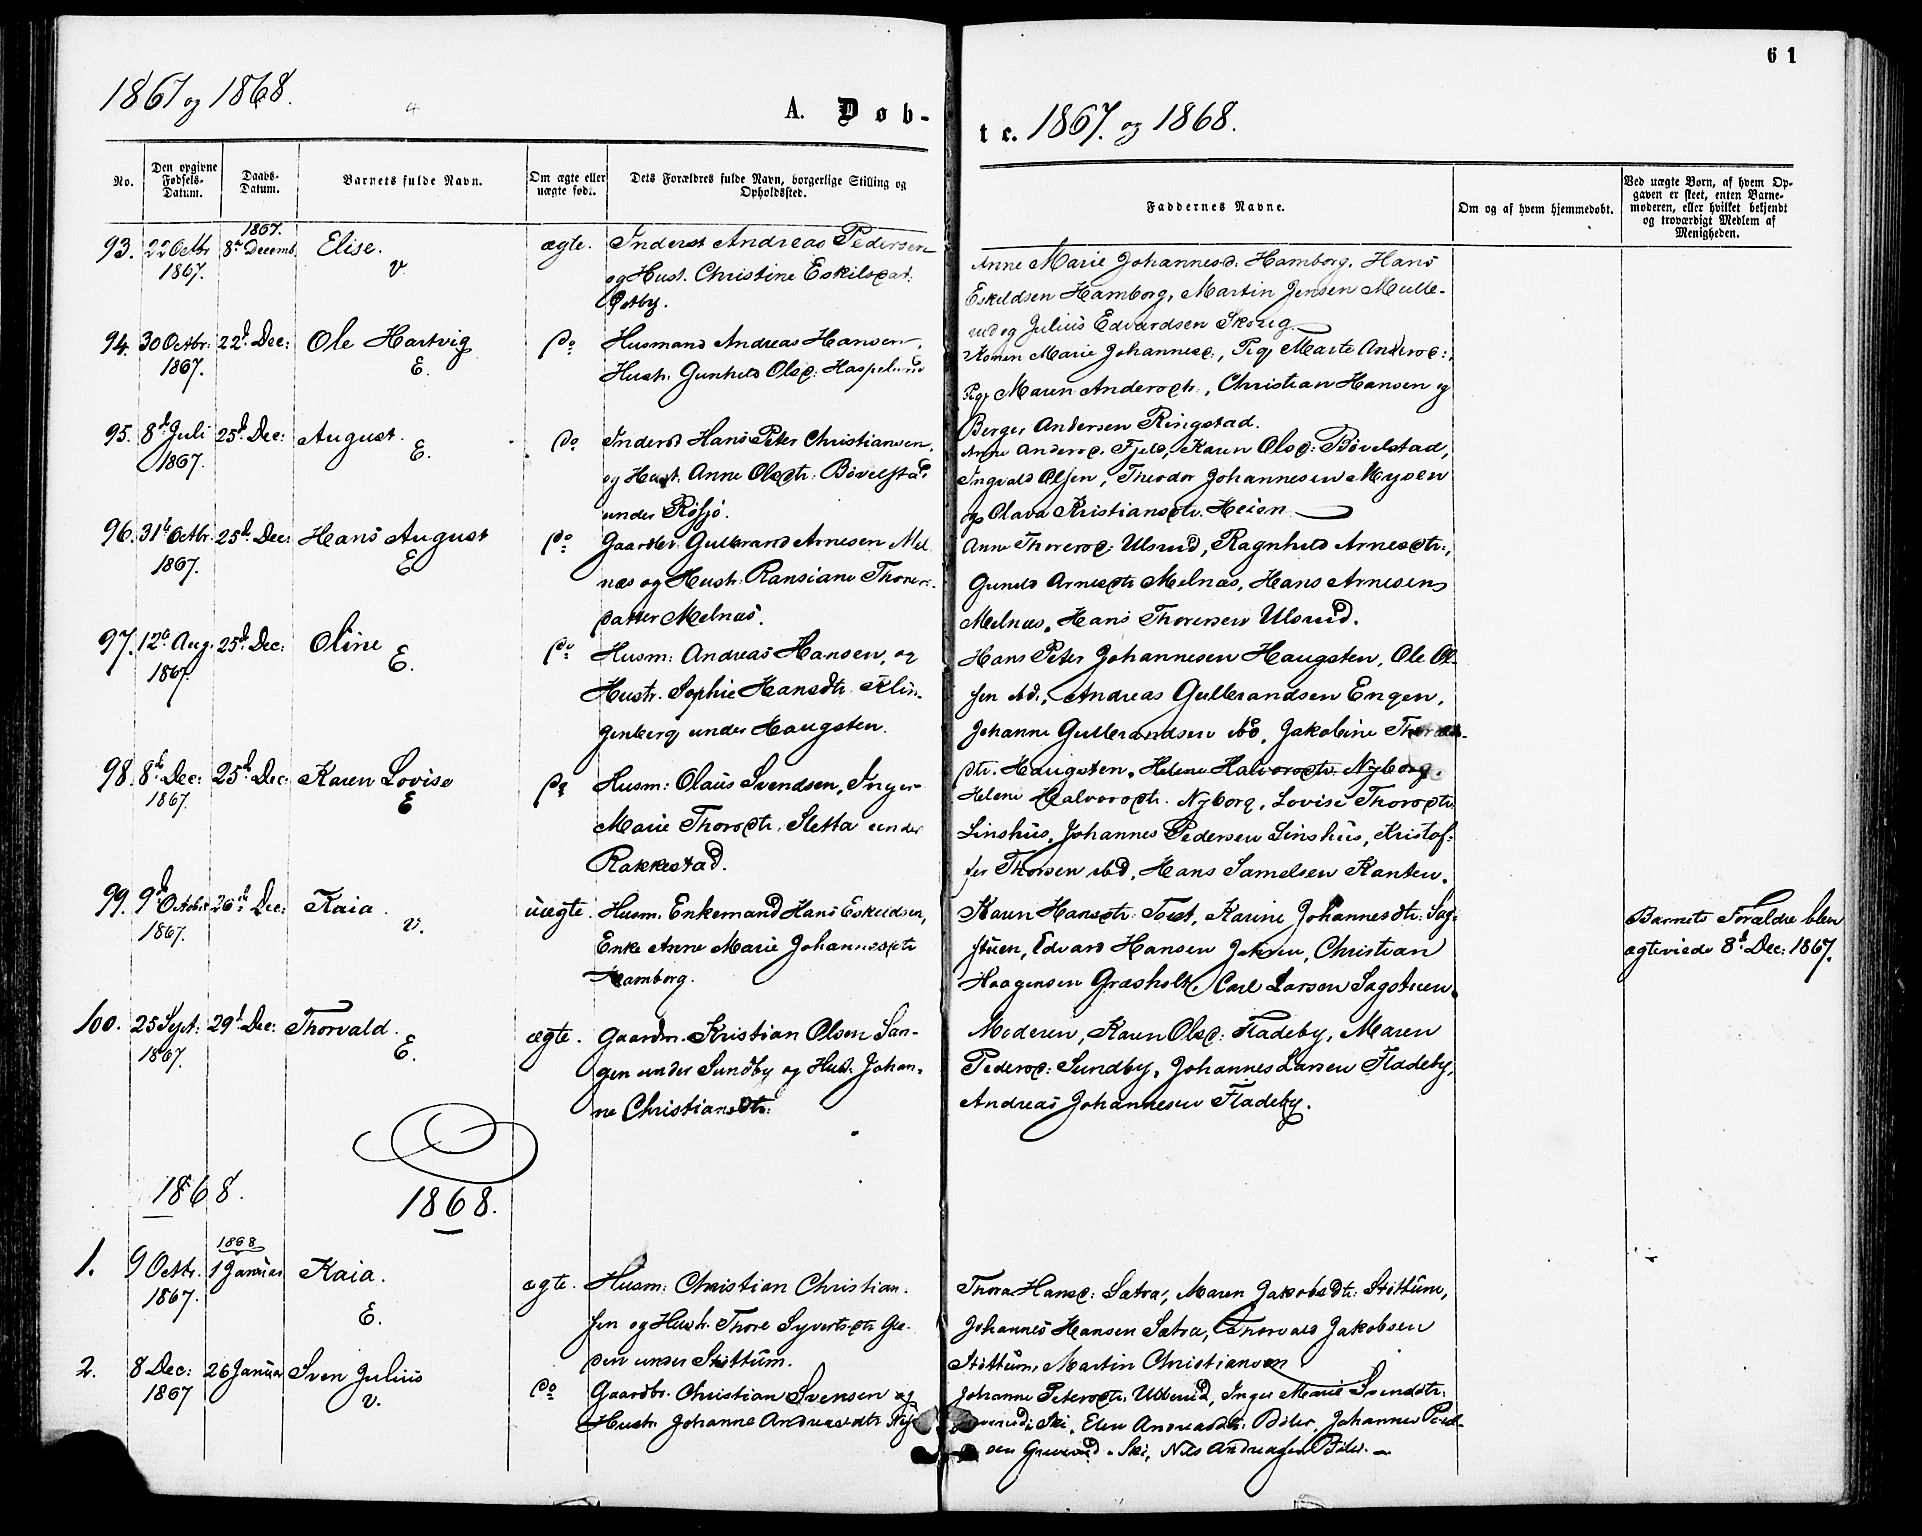 61
1867 og 1868.
A. Døb-
te. 1867. og 1868.
No.
Den opgivne Fødsels-Datum.
Daabs-Datum.
Barnets fulde Navn.
Om ægte eller uægte født.
Dets Forældres fulde Navn, borgerlige Stilling og Opholdssted.
Faddernes Navne.
Om og af hvem hjemmedøbt.
Ved uægte Børn, af hvem Op-
gaven er skeet, enten Barne-
moderen, eller hvilket bekjendt
og troværdigt Medlem af
Menigheden.
1867.
93. 22 Octbr 8de Decemb. Elise. ægte. Inderst Andreas Pedersen
1867. v. og Hust. Christine Eskilsdat:
Østby.
Anne Marie Johannesd. Hamborg, Hans
Eskildsen Hamborg, Martin Jensen Mulle-
rud og Julius Edvardsen Skoug.
94. 30 Octbr. 22d Dec: Ole Hartvig do Husmand Andreas Hansen,
1867. E. Hustr. Gunhild Olsd: Haspelund
Konen Marie Johannesd:, Pige Marte Andersd:,
Pige Maren Andersdtr., Christian Hansen og
Berger Andersen Ringstad.
95. 8d Juli 25d Dec: August. do Inderst Hans Peter Christiansen,
1867. E. og Hust. Anne Olsdtr: Bøvelstad
under Røssjø.
Anne Andersd. Fjeld, Karen Olsd: Bøvelstad,
Ingvald Olsen, Theodor Johannesen Mysen
og Olava Kristiansdtr. Heien
96. 31te Octbr. 25d Dec: Hans August do Gaardbr. Gulbrand Arnesen Mel-
1867. E næs og Hustr. Ransiane Thorers-
datter Melnæs.
Anne Thorersd: Ulsrud, Ragnhild Arnesdtr.,
Gunild Arnesdtr Melnæs, Hans Arnesen
Melnæs, Hans Thorersen Ulsrud.
97. 12te Aug. 25d Dec: Oline do Husm: Andreas Hansen, og
1867. E. Hustr. Sophie Hansdtr. Klin-
genberg under Haugsten.
Hans Peter Johannesen Haugsten, Ole Ol-
sen ibd., Andreas Gulbrandsen Engen,
Johanne Gulbrandsen ibd, Jakobine
dtr. Haugsten. Helene Halvorsdtr. Nyborg.
98. 8d Dec: 25d Dec: Karen Lovise do Husm: Olaus Svendsen, Inger
1867. E Marie Thorsdtr. Sletta under
Rakkestad.
Helene Halvorsdtr. Nyborg, Lovise Thorsdtr
Linshus, Johannes Pedersen Linshus, Kristof-
fer Thorsen ibd, Hans Samelsen Kanten.
99. 9d October 26d Dec: Kaia uægte. Husm. Enkemand Hans Eskildsen,
1867. v. Enke Anne Marie Johannesdtr
Hamborg.
Karen Hansdtr: Tost, Karine Johannesdtr: Sag-
stuen, Edvard Hansen, Christian
Haagensen Græsholt, Carl Larsen Sagstuen.
Barnets Forældre blev
ægteviede 8d Dec: 1867.
100. 25 Sept: 29d Dec: Thorvald. ægte. Gaardm. Kristian Olsen San-
1867. E. gen under Sundby og Hust. Johan-
ne Christiansdtr:
Moderen, Karen Olsd: Fladeby, Maren
Pedersd: Sundby, Johannes Larsen Fladeby,
Andreas Johannesen Fladeby.
1868.
1868.
1868
1. 9 Octbr. 1 Januar Kaia. ægte. Husm: Christian Christian-
1867. E. sen og Hustr. Thore Syvertsdtr Gra-
den under Støttum.
Thora Hansd: Sætra, Maren Jakobsdtr: Støttum,
Johannes Hansen Sætra, Thorvald Jakobsen
Støttum, Martin Christiansen
2. 8 Dec: 26 Januar Sven Julius do Gaardbr. Christian Svensen og
1867 v. Hustr. Johanne Andreasdtr
Johanne Petersdtr. Ulverud, Inger Marie Svendsdtr.
i Ski, Elen Andreasdtr: Bøler, Johannes
Greverud i Ski, Nils Andreasen Bøler.